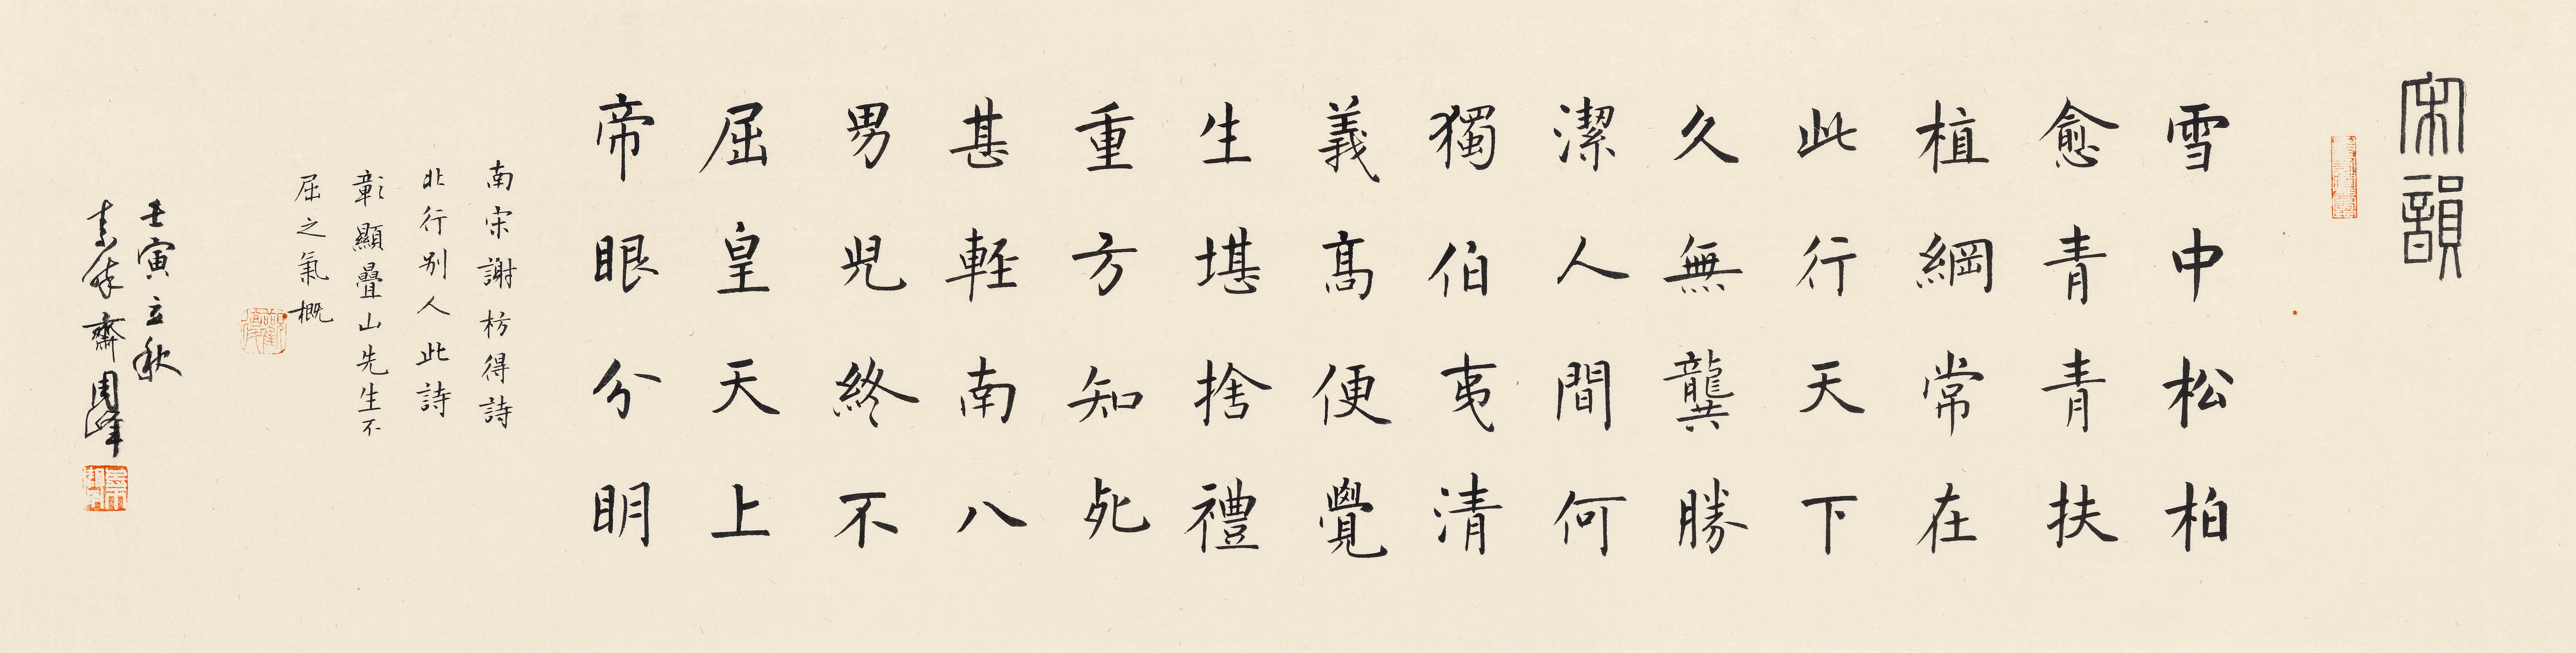 宋韻
雪中松柏
愈青青扶
植綱常在
此行天下
久無龔勝
潔人間何
獨伯夷清
義高便覺
生堪捨禮
重方知死
甚輊南八
男児終不
屈皇天上
帝眼分明
南宋謝枋得詩
北行別人此詩
彰顯疊山先生不
屈之氣概
壬寅立秋
齋周峰